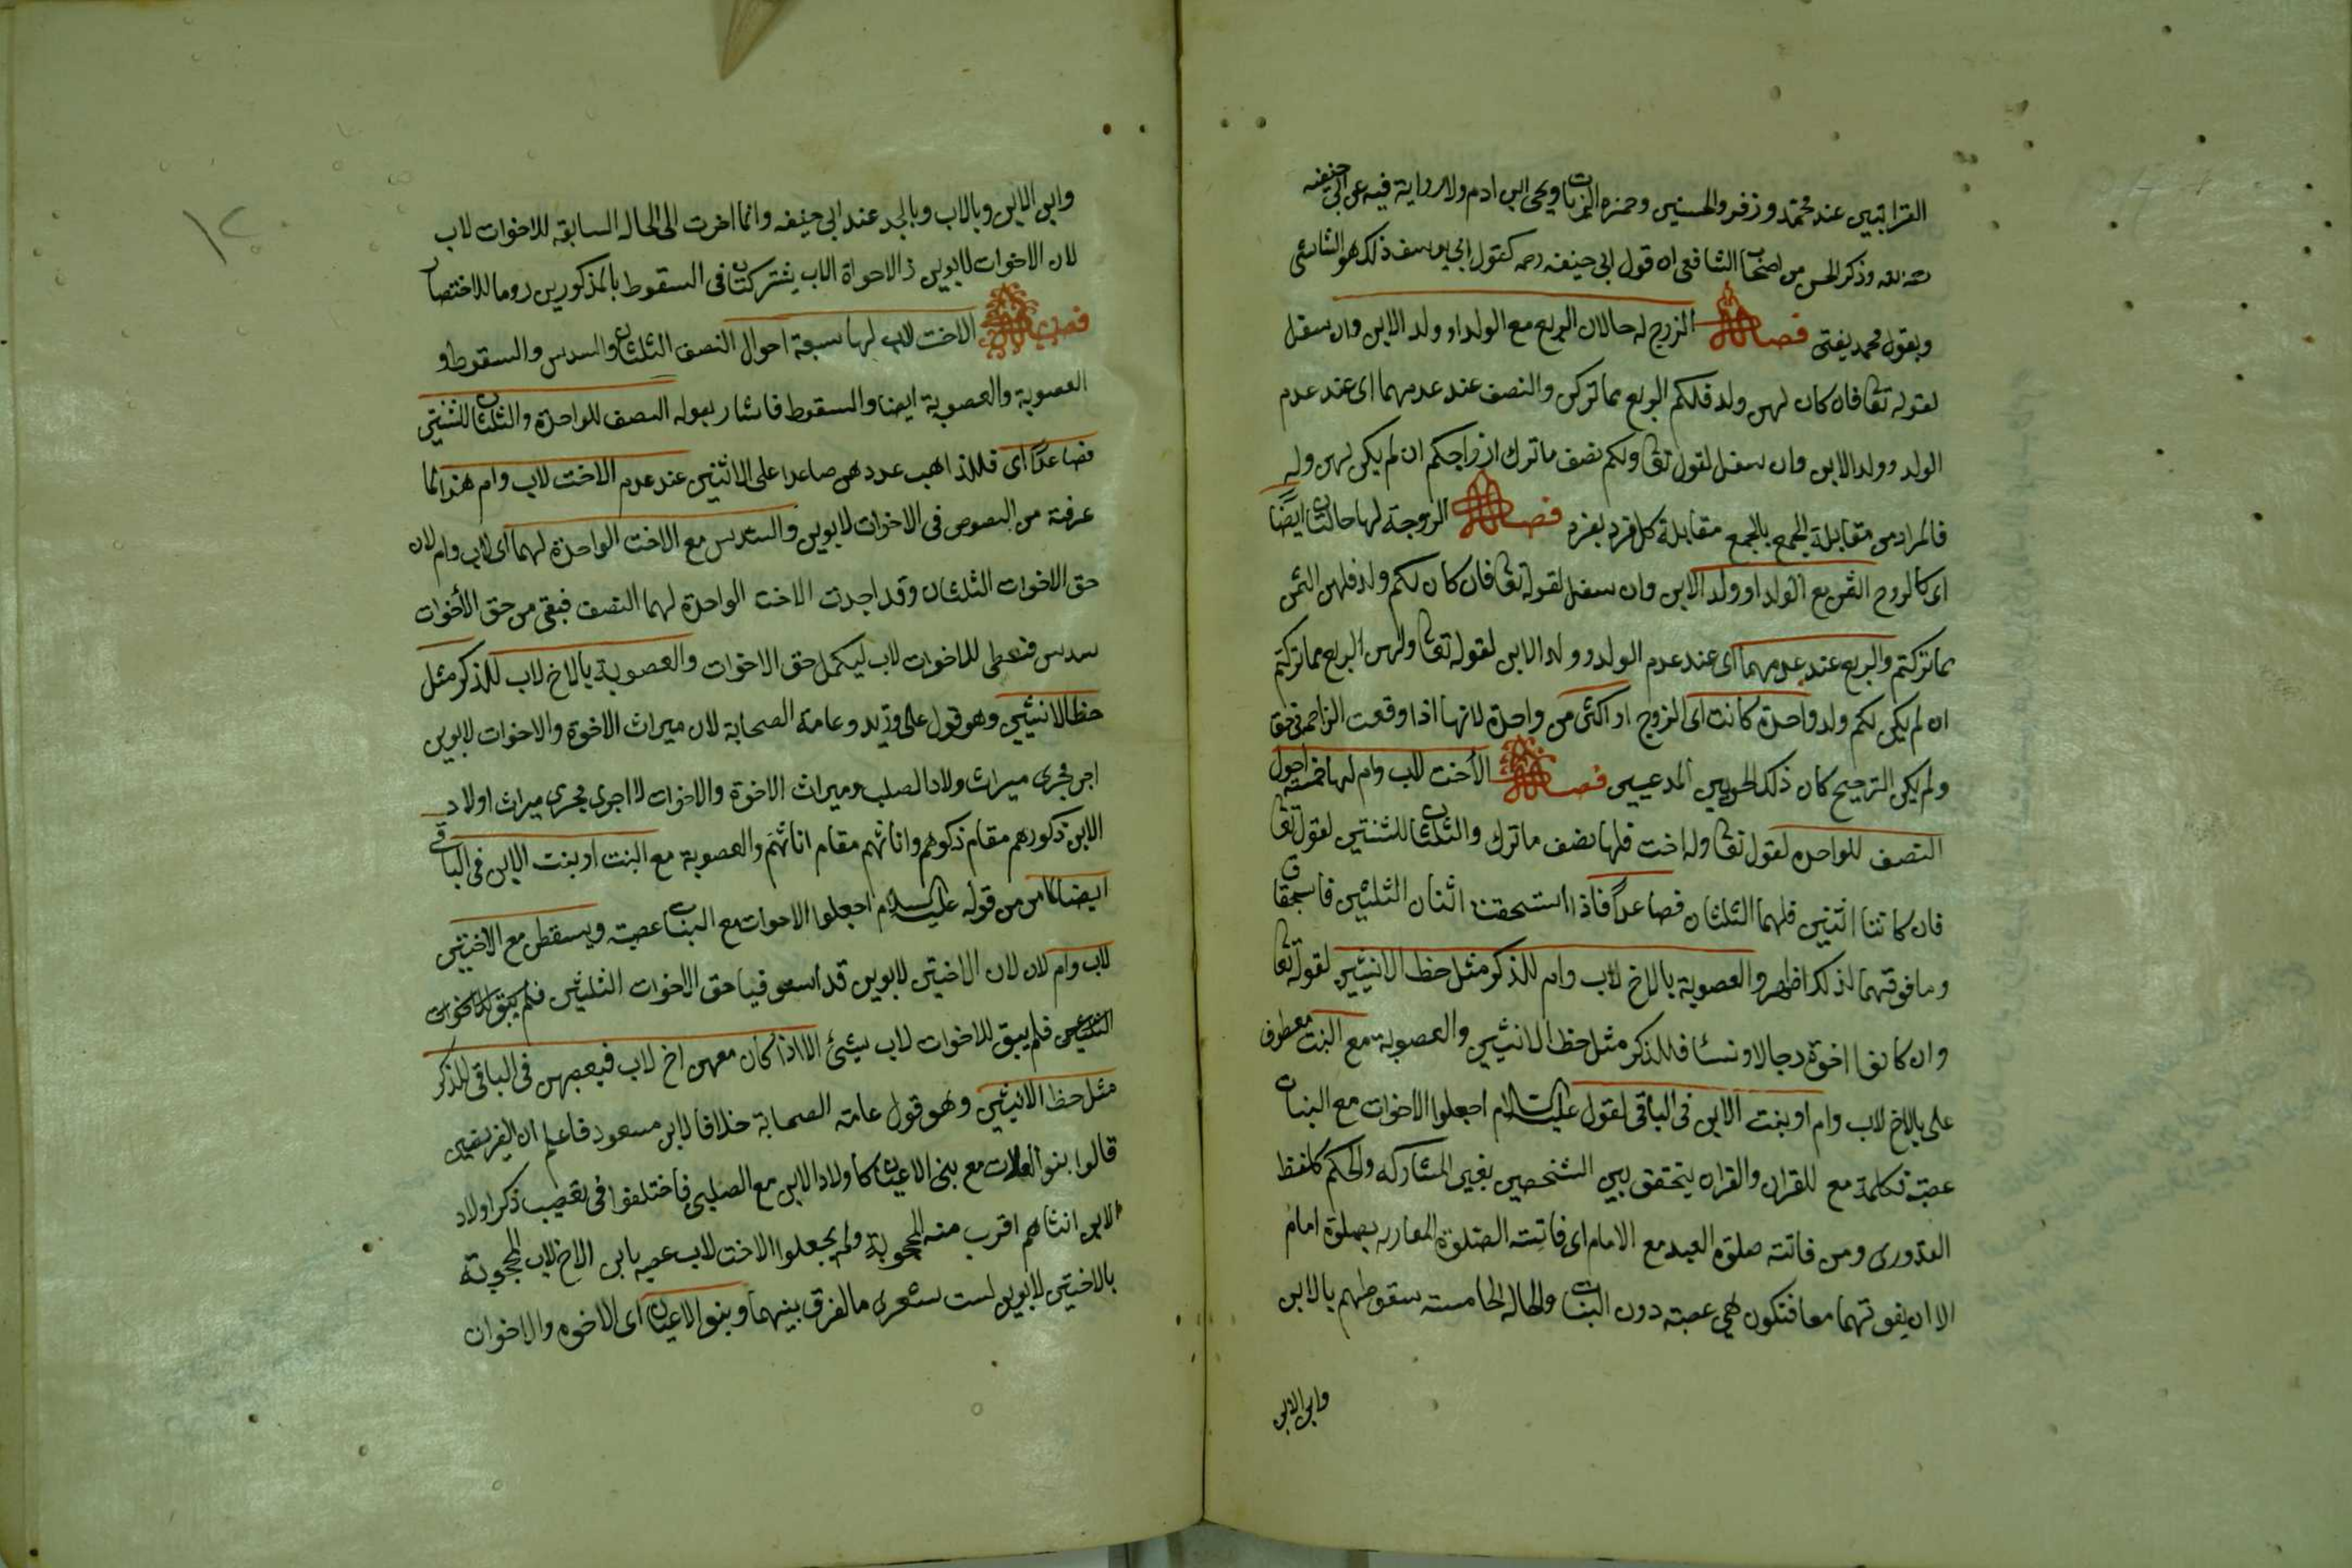 القرابتين عند محمد وزفر والحسنين وحمزه الزيات ويحي ابن ادم ولا رواية فيه عن ابي حنيفه
وذكر الحسن من اصحاب الشافعي ان قول ابي حنيفه رحمه كقول ابي يوسف ذلك هو الشافعي
وبقول محمد يفتى فصل الزوج له حالان الربع مع الولد او ولد الابن وان سفل
لقوله تعا فان كان لهن ولد فلكم الربع مما تركن والنصف عند عدمهما اى عند عدم
الولد وولد الابن وان سفل لقول تعا ولكم نصف ما ترك ازواجكم ان لم يكن لهن ولد
فالمراد من مقابلة الجمع بالجمع مقابلة كل فرد بفرد فصل الزوجة لها حالتان ايضًا
اى كالزوج الثمن مع الولد او ولد الابن وان سفل لقوله تعا فان كان لكم ولد فلهن الثمن
مما تركتم والربع عند عدمهما اى عند عدم الولد وولد الابن لقوله تعا ولهن الربع مما تركتم
ان لم يكن لكم ولد واحدة كانت اى الزوج او اكثر من واحدة لانها اذا وقعت الزاحمة في حق
ولم يكن الترجيح كان ذلك المدعيين فصل الاخت لاب وام لها خمسة احوال
النصف للواحده لقول تعا وله اخت فلها نصف ما ترك والثلثان للثنتين لقول تعا
فان كانتا اثنتين فلهما الثلثان فصاعداً فاذا استحقت اثنتان الثلثين فاستحقاق
وما فوقهما لذلك اظهر والعصوبة بالاخ لاب وام للذكر مثل حظ الانثيين لقوله تعا
وان كانوا اخوة رجالا ونسا فللذكر مثل حظ الانثيين والعصوبة مع البنت معطوف
على بالاخ لاب وام او بنت الابن فى الباقى لقول عليه السلام اجعلوا الاخوات مع البنات
عصبة فكلمة مع للقران والقران يتحقق بين الشخصين بغير المشاركه والحكم كلفظ
القدورى ومن فاتته صلوة العيد مع الامام اى فاتته الصلوة المقارنه بصلوة امام
الا ان يفوتهما معا فتكون هي عصبته دون البنات والحاله الخامسته سقوطهم بالابن
وابن الابن
وابن الابن وبالاب وبالجد عند ابي حنيفه وانما اخرت الى الحاله السابقه للاخوات لاب
لان الاخوات لابوين والاخوات لاب يشتركان فى السقوط بالمذكورين روما للاختصار
فصل الاخت لاب لها سبعة احوال النصف الثلثان والسدس والسقوط و
العصوبة والعصوبة ايضا والسقوط فاشار بقوله النصف للواحدة والثلثان للثنتين
فصاعدًا اى فللذاهب عددهن صاعدا على الاثنتين عند عدم الاخت لاب وام هذا لما
عرفته من النصوص فى الاخوات لابوين والسدس مع الاخت الواحدة لهما اى لاب وام لان
حق الاخوات الثلثان وقد اخذت الاخت الواحدة لهما النصف فبقى من حق الأخوات
سدس فتعطى للاخوات لاب ليكمل حق الاخوات والعصوبة بالاخ لاب للذكر مثل
حظ الانثيين وهو قول على وزيد وعامة الصحابة لان ميراث الاخوة والاخوات لابوين
اجر مجرى ميراث ولاد الصلب وميراث الاخوة والاخوات لا اجرى مجرى ميراث اولاد
الابن ذكورهم مقام ذكوهم واناثهم مقام اناثهم والعصوبة مع البنت او بنت الابن فى الباقى
ايضا كما مر من قوله عليه السلام اجعلوا الاخوات مع البنات عصبته ويسقطن مع الاختين
لاب وام لان لان الاختين لابوين قد حق الاخوات الثلثين فلم يبق للاخوات
فلم يبق للاخوات لاب شئ الا اذا كان معهن اخ لاب فيعصبهن فى الباقى للذكر
مثل حظ الانثيين وهو قول عامة الصحابة خلافا لابن مسعود فاعلم ان
قالوا بنو العلات مع بنى الاعيان كاولاد الابن مع الصلبى فاختلفوا فى تعصيب ذكر اولاد
الابن انثاهم اقرب منه المحجوبة ولم يجعلوا الاخت لاب عصبه بابن الاخ لاب المحجوبة
بالاختين لابوين لست شعرى ما الفرق بينهما وبنو الاعيان اى الاخوه والاخوات